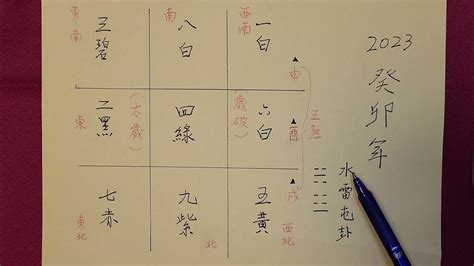 東南
三碧
南
八白
西南
一白
申
東
二黑
(太歲)
四綠
(歲破)
六白
酉
三煞
東北
七赤
九紫
北
五黃
戌
西北
2023
癸卯年
水雷屯卦